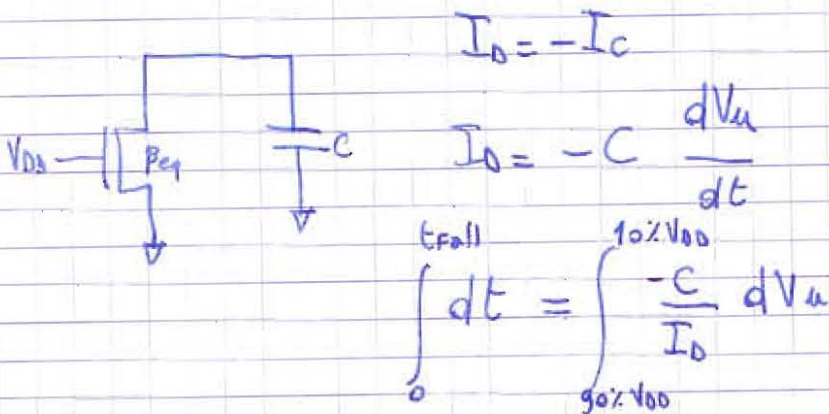 I_D = -I_C
V_DD β_eq C
I_D = -C dVu/dt
∫_0^{tFall} dt = ∫_{90% V_DD}^{10% V_DD} -C/I_D dVu